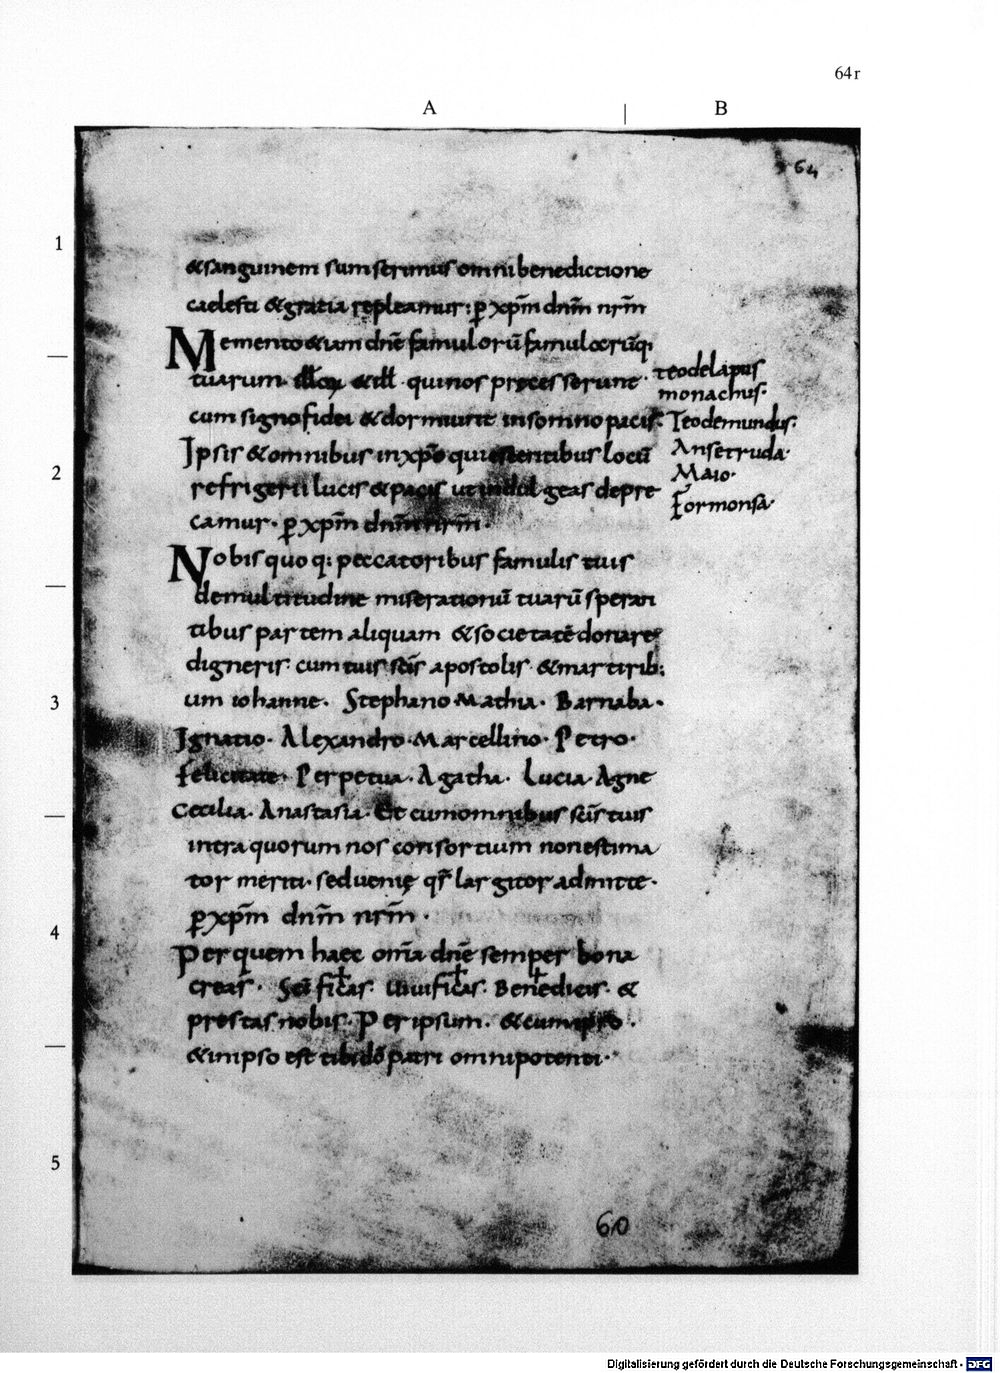 64r
A | B
64
1
&sanguinem sumserimus omni benedictione
caelesti &gratia repleamur: p xp̄m dnm̄ nrm̄
Memento &iam dnē famulorū famularūq;
tuarum. &ill quinos precesserunt.
teodelapus
monachus.
cum signo fidei &dormiunt insomno pacis.
Teodemundus.
2
Ipsis &omnibus inxpō quiescentibus locū
Ansetruda.
Maio.
refrigerii lucis &pacis utindulgeas depre
Formonsa.
camur. p xp̄m dnm̄ nrm̄.
Nobis quoq: peccatoribus famulis tuis
demultitudine miserationū tuarū speran
tibus partem aliquam &societatē donare
digneris. cum tuis scīs apostolis. &martirib;
3
um iohanne. Stephano Mathia. Barnaba.
Ignatio. Alexandro. Marcellino. Petro.
felicitate. Perpetua. Agatha. Lucia. Agne
Cecilia. Anastasia. Et cumomnibus scīs tuis
intra quorum nos consortium nonestima
tor meriti. sedvenię qs̄ largitor admitte.
4
p xp̄m dnm̄ nrm̄.
Per quem haec om̄a dnē semper bona
creas. Scīfi✝cas. Uivifi✝cas. Bene✝dicis. &
prestas nobis. Per ipsum. &cumipso.
&inipso est tibidō patri omnipotenti.
5
60
Digitalisierung gefördert durch die Deutsche Forschungsgemeinschaft - DFG